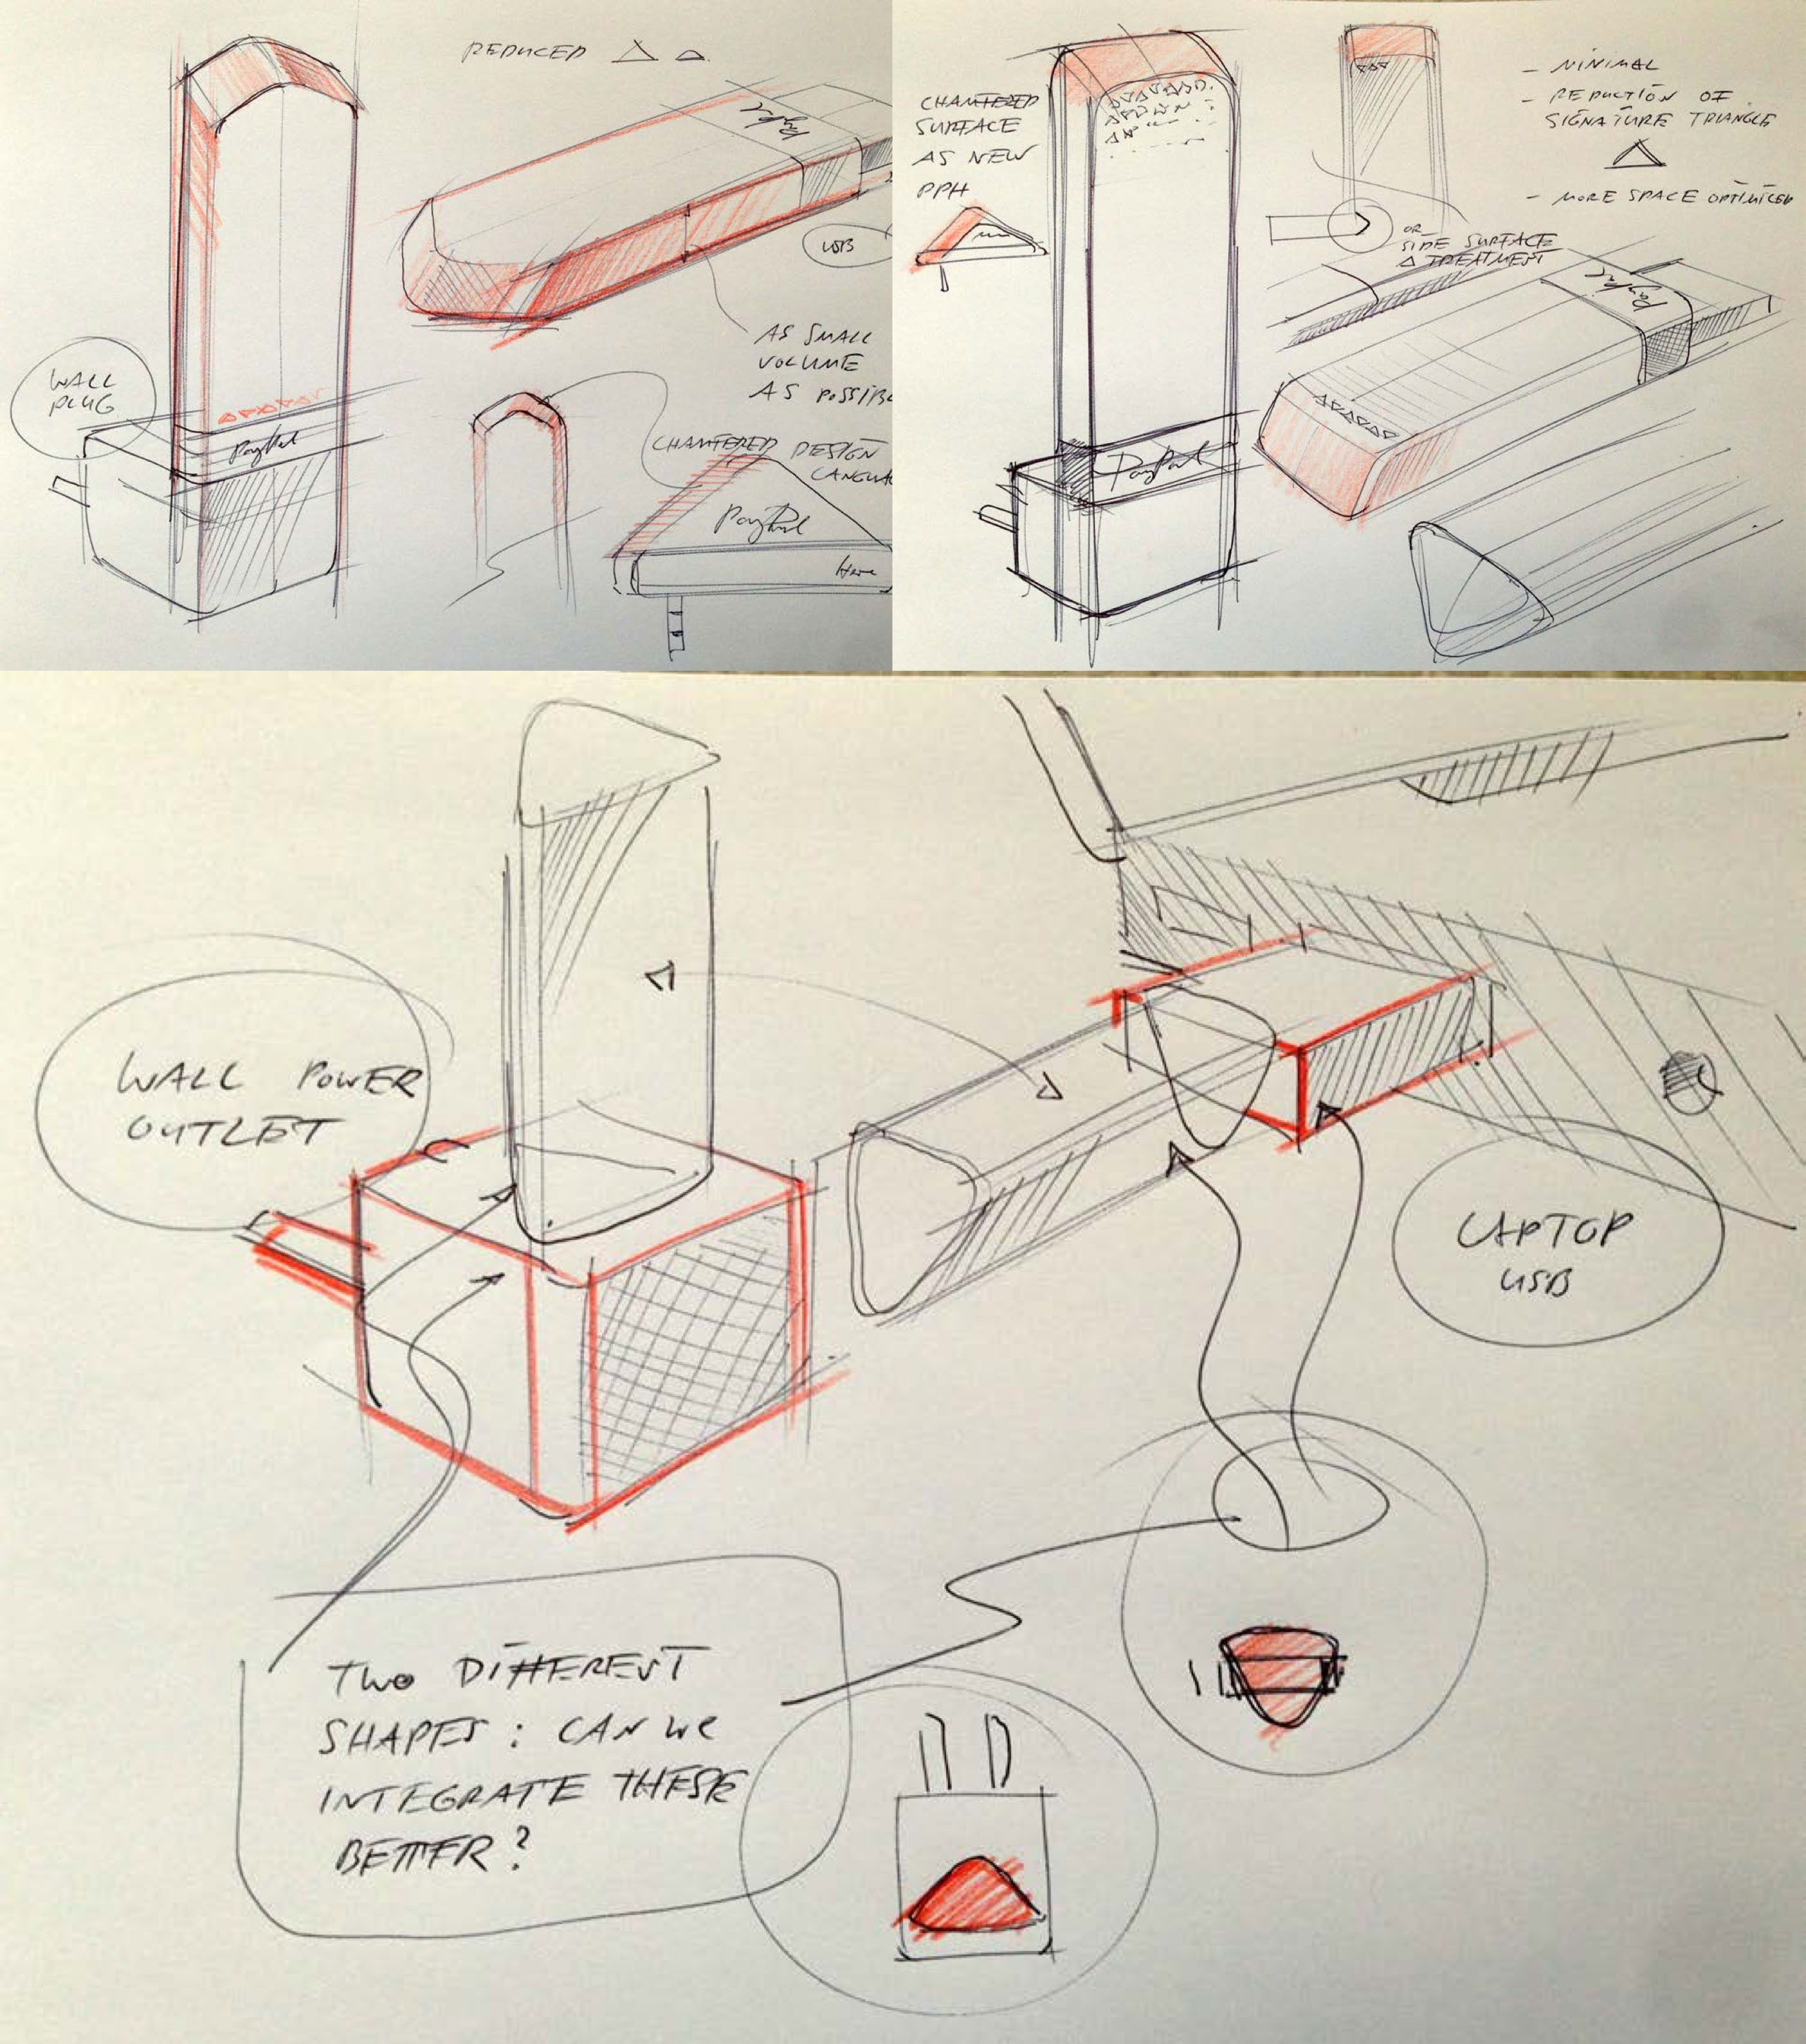 REDUCED
PayPal
USB
AS SMALL
VOLUME
AS POSSIB
WALL
PLUG
PayPal
CHAMFERED DESIGN
LANGUA
PayPal
Here
CHAMFERED
SURFACE
AS NEW
PPH
- MINIMAL
- REDUCTION OF
SIGNATURE TRIANGLE
- MORE SPACE OPTIMIZED
OR
SIDE SURFACE
Δ TREATMENT
PayPal
PayPal
WALL POWER
OUTLET
LAPTOP
USB
TWO DIFFERENT
SHAPES: CAN WE
INTEGRATE THESE
BETTER?